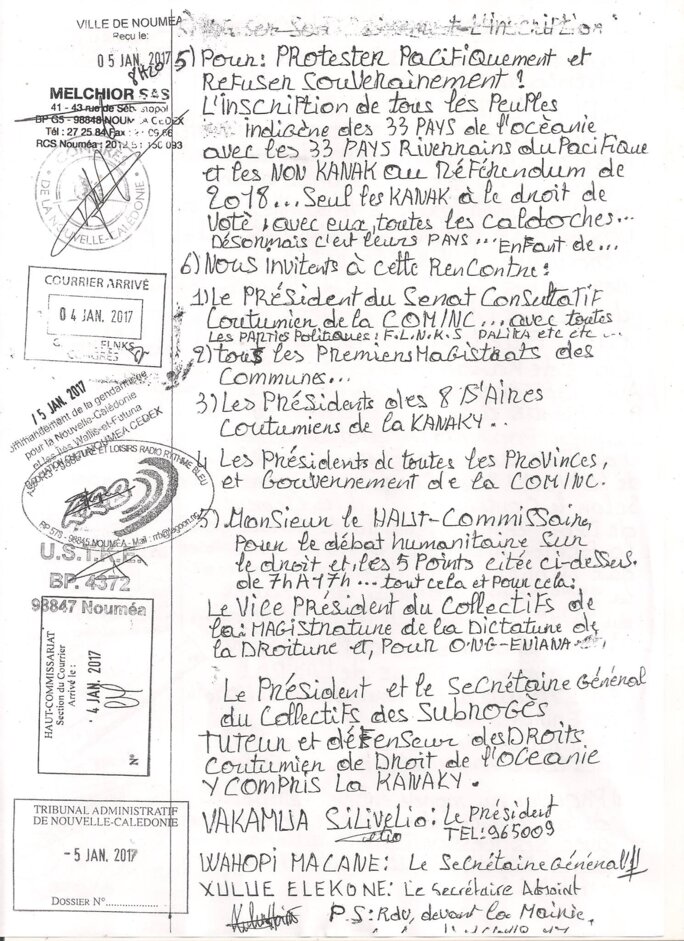 VILLE DE NOUMEA
Reçu le:
05 JAN. 2017
8H20
MELCHIOR SAS
41 - 43 rue de Séb stopol
BP G5 - 98848 NOUM A CEDEX
Tél : 27 25 84 Fax : 09 66
RCS Nouméa : 2012 B 1 150 093
DE LA NOUVELLE-CALÉDONIE
COURRIER ARRIVÉ
04 JAN. 2017
FLNKS
CONGRÈS
15 JAN. 2017
de la gendarmerie
pour la Nouvelle-Calédonie
et les îles Wallis-et-Futuna
NOUMEA CEDEX
ASSOCIATION CULTURE ET LOISIRS RADIO RYTHME BLEU
BP 578 - 98845 NOUMÉA - Mail : rrb@lagoon.nc
U.S.T.K.E.
BP. 4372
98847 Nouméa
HAUT-COMMISSARIAT
Section du Courrier
Arrivé le :
4 JAN. 2017
N°
TRIBUNAL ADMINISTRATIF
DE NOUVELLE-CALEDONIE
-5 JAN. 2017
DOSSIER N°...................
L'inscription
5) Pour: PROtester Pacifiquement et
Refuser Souverainement !
L'inscription de tous les Peuples
indigène des 33 PAYS de l'ocèanie
avec les 33 PAYS Riverrains du Pacifique
et les NON KANAK au Référendum de
2018... Seul les KANAK à le droit de
Vote, avec eux, toutes les caldoches...
Désormais c'est leurs PAYS... Enfant de...
6) Nous Invitents à cette Rencontre:
1) Le PRésident du Senat Consultatif
Coutumien de la COMINC... avec toutes
Les PARties Politiques: F.L.N.K.S PALIKA etc etc...
2) tous les Premiers Magistrats des
Communes...
3) Les Présidents des 8 D'Aires
Coutumiens de la KANAKY...
4 Les Présidents de toutes les Provinces,
et Gouvernement de la COMINC.
5) Monsieur le HAUT-Commissaire,
Pour le débat humanitaire sur
le droit et, les 5 Points citée ci-dessus.
de 7hA17h... tout cela et Pour cela:
Le Vice Président du Collectifs de
la: MAGistrature de la Dictature de
la DRoiture et, Pour ONG-ENIANA
Le Président et le Secrétaire Général
du Collectifs des SUBROGÈS
TUTEUR et défenseur des DROITS
Coutumien de Droit de l'Oceanie
Y COMPRIS la KANAKY.
VAKAMUA SiLiVeLio: Le Président
TEL: 965009
WAHOPI MACANE: Le Secrétaire Général
XULUE ELEKONE: Le Secrétaire Adjoint
P.S: Rdv, devant la Mairie,